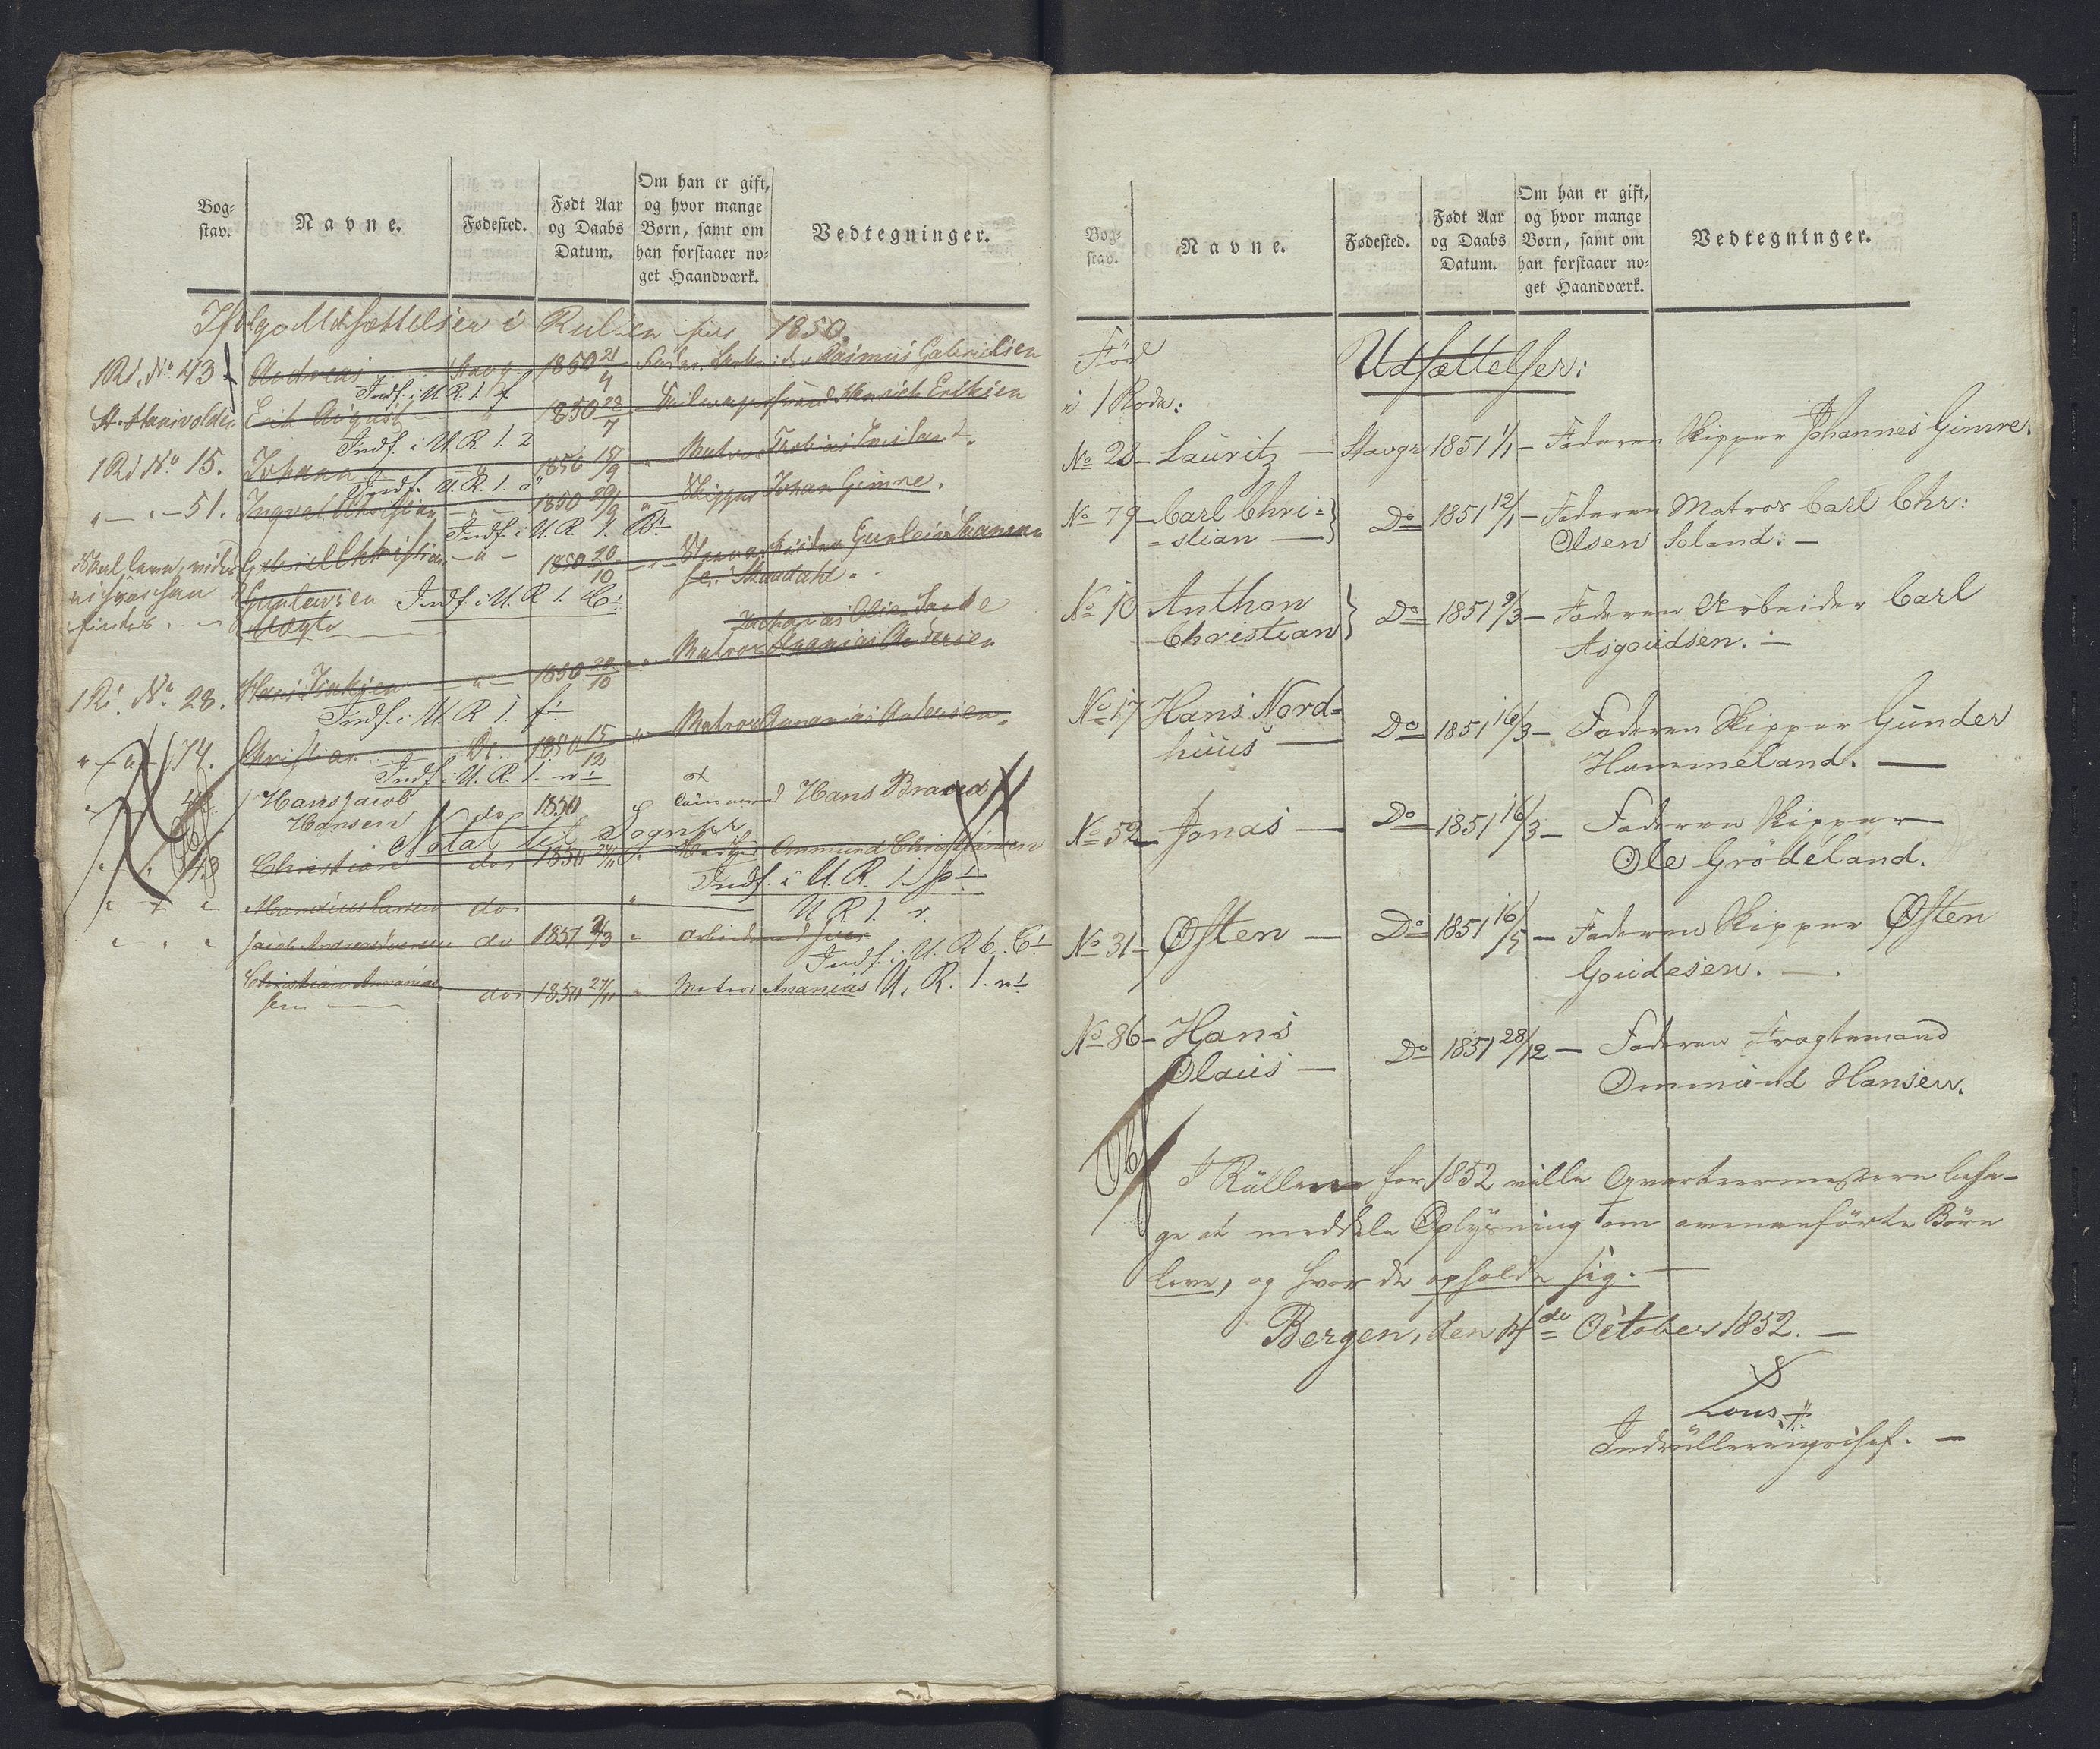 Bog-
stav.
Navne.
Fødested.
Født Aar
og Daabs
Datum.
Om han er gift,
og hvor mange
Børn, samt om
han forstaaer no-
get Haandværk.
Vedtegninger.
Ifølge Udsættelser i Rullen for 1850.
1 Rd. No 43 Andreas Stavgr 1850 21/4 Rasmus Gabrielsen
Indf. i U. R. 1.
Erik August 1850 28/7 Henrich Eriksen
Indf. i U. R. 1. 2
1 Rd No 15. Johann 1850 15/9 Matros Thobias
Indf. U. R. 1. ö
" — " — 51. Ingval Christian — " — 1850 29/9 " — Skipper Johan Gimre.
Indf. i U. R. 1. B1
Skal leve, vides Gabriel Christian — " — 1850 20/10
Gunleivsen Indf. i U. R. 1. C1
findes.
Zacharias Olsen Sande
Matros Ananias Andersen
1 Rd. No 28. Hans 1850 20/10
Indf. i U. R. 1. f1
74. Christian Do 1850 15/12 Matros Ananias Andersen.
Indf. i U. R. 1. n1
Hans Jacob do 1850 Hans Braud
Hansen
Notat til Sognepr
43 Christian do 1850 24/11 Ommund Christiansen
Indf. i U. R. 1. p1
Mandius Larsen do
U. R. 1. r.
Jacob Andreas Iversen do 1851 2/3 " Arbeidsmand Iver
Indf. i U. R. 6. C1
Christian Ananias-
sen do 1850 27/11 " Matros Ananias U. R. 1. n1
Bog-
stav.
Navne.
Fødested.
Født Aar
og Daabs
Datum.
Om han er gift,
og hvor mange
Børn, samt om
han forstaaer no-
get Haandværk.
Vedtegninger.
Före
i 1 Rode:
Udsættelser:
No 28 — Lauritz — Stavgr 1851 1/1 — Faderen Skipper Johannes Gimre.
No 79 — Carl Chri- } Do 1851 12/1 — Faderen Matros Carl Chr:
-stian — Olsen Soland. —
No 10 Anthon } Do 1851 9/3 — Faderen Arbeider Carl
Christian Asgoudsen. —
No 17 Hans Nord- Do 1851 16/3 — Faderen Skipper Gunder
huus — Hommeland. —
No 52 — Jonas — Do 1851 16/3 — Faderen Skipper
Ole Grödeland.
No 31 — Østen — Do 1851 16/5 — Faderen Skipper Østen
Goudesen. —
No 86 — Hans Do 1851 28/12 — Faderen Fragtemand
Olaus — Ommund Hansen.
I Rullerne for 1852 ville Qvarteermesterne beha-
ge at meddele Oplysning om ovenanförte Börn
leve, og hvor de opholde sig. —
Bergen, den 4de October 1852. —
Lous
Indrulleringschef. —